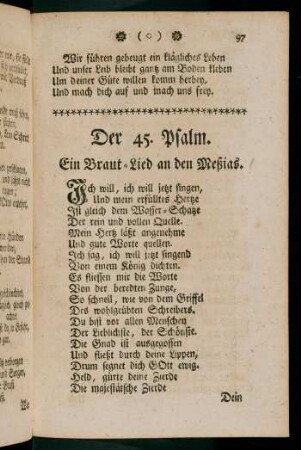 ( o ) 97
Wir führen gebeugt ein klägliches Leben
Und unser Leib bleibt gantz am Boden kleben
Um deiner Güte willen komm herbey,
Und mach dich auf und mach uns frey.
Der 45. Psalm.
Ein Braut-Lied an den Meßias.
Ich will, ich will jetzt singen,
Und mein erfülltes Hertze
Ist gleich dem Wasser-Schatze
Der rein und vollen Quelle.
Mein Hertz läßt angenehme
Und gute Worte quellen.
Ich sag, ich will jetzt singend
Von einem König dichten.
Es fliessen mir die Worte
Von der beredten Zunge,
So schnell, wie von dem Griffel
Des wohlgeübten Schreibers.
Du bist vor allen Menschen
Der lieblichste, der Schönste.
Die Gnad ist ausgegossen
Und fließt durch deine Lippen,
Drum segnet dich GOtt ewig.
Held, gürte deine Zierde
Die majestätsche Zierde
Dein